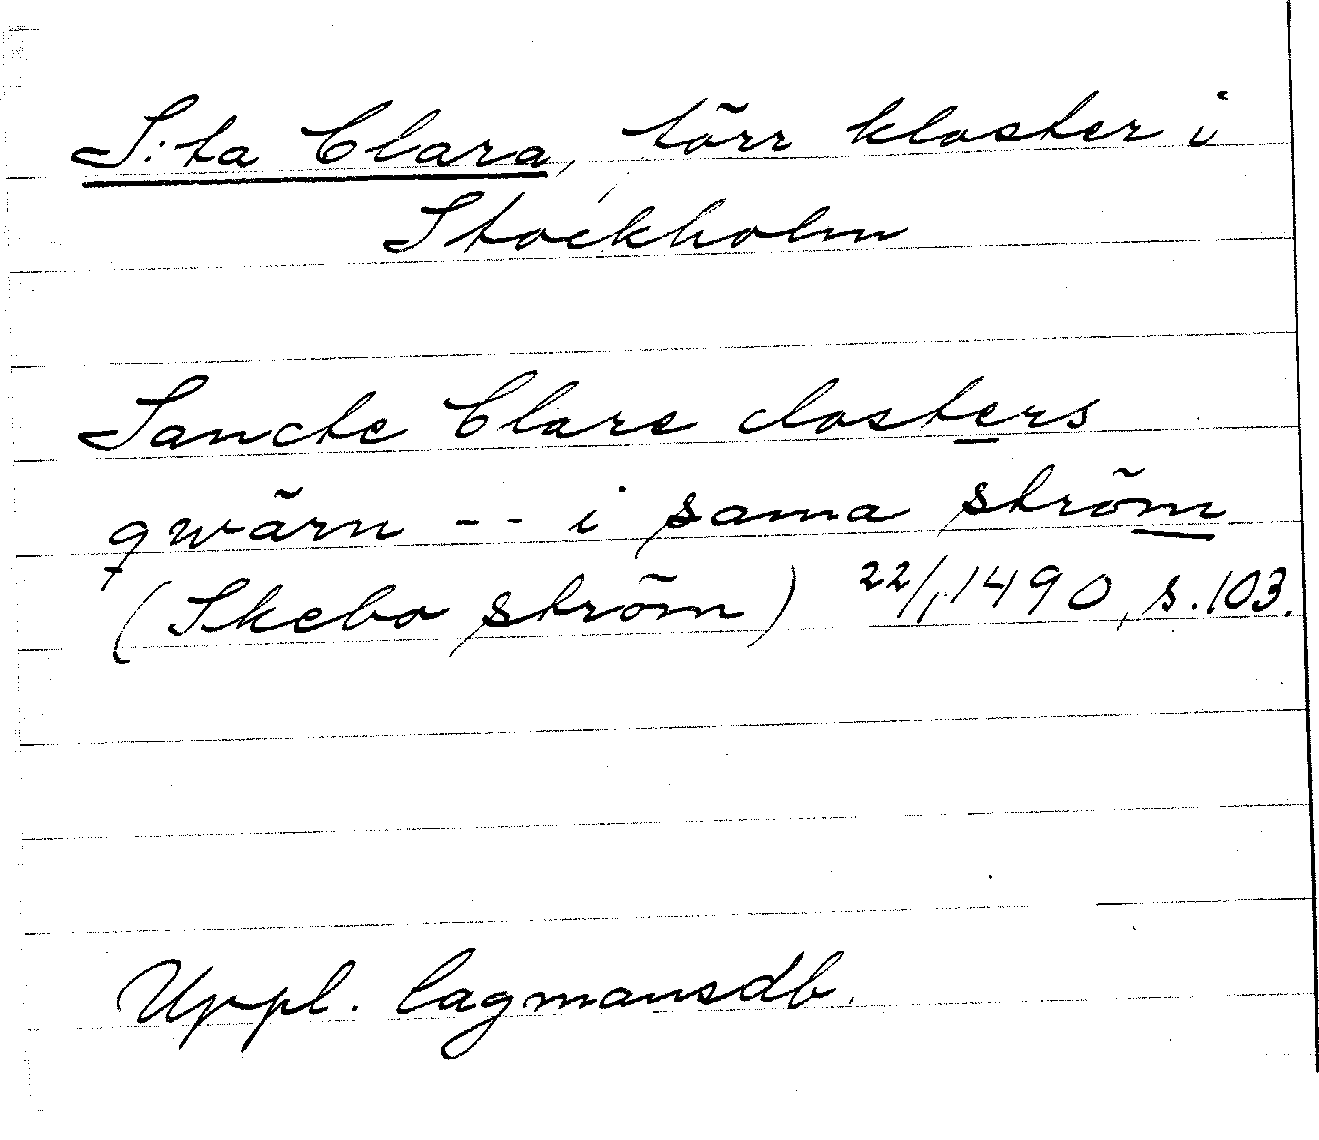 S:ta Clara, förr kloster i
Stockholm
Sancte Clare closters
qwärn -- i sama ström
(Skebo ström) 22/1 1490, s. 103.
Uppl. lagmansdb.